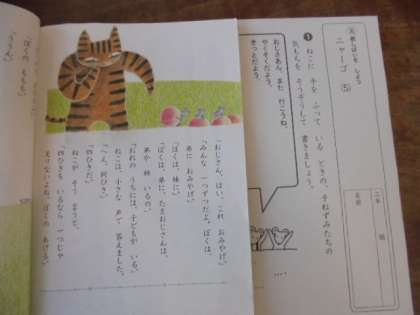 「ぼくの ももも。」
「ううん。」
「おじさん、はい、これ、おみやげ。」
「みんな 一つずつだよ。ぼくは、
弟に おみやげ。」
「ぼくは、妹に。」
「ぼくは、弟に。たまおじさんは、
弟か 妹 いるの。」
「おれの うちには、子どもが いる。」
ねこは、小さな 声で 答えました。
「へえ、何びき。」
「四ひきだ。」
ねこが そう 言うと、
「四ひきも いるなら 一つじゃ
足りないよね。ぼくの あげる。」
ニャーゴ ⑤
二年 組
名前
❶ ねこに 手を ふって いる ときの、子ねずみたちの
気もちを そうぞうして 書きましょう。
おじさあん、また 行こうね。
やくそくだよう。
きっとだよう。